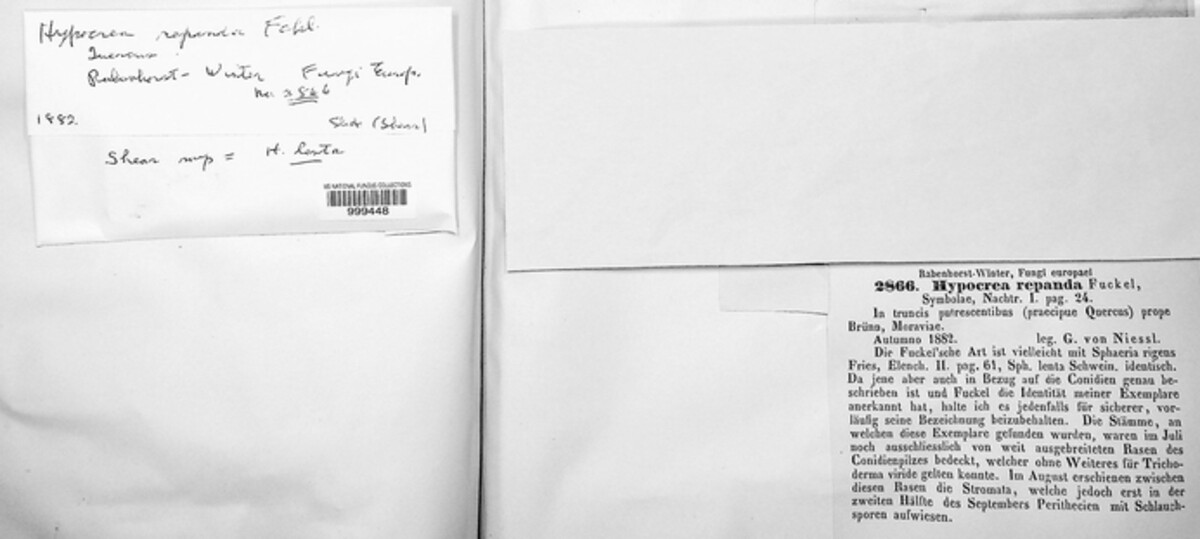 Hypocrea repanda Fckl.
Quercus
Rabenhorst-Winter Fungi Europ.
No. 2866
1882.
Slide (Shear)
Shear msp = H. lenta
US NATIONAL FUNGUS COLLECTIONS
999448
Rabenhorst-Winter, Fungi europaei
2866. Hypocrea repanda Fuckel,
Symbolae, Nachtr. I. pag. 24.
In truncis putrescentibus (praecipue Quercus) prope
Brünn, Moraviae.
Autumno 1882. leg. G. von Niessl.
Die Fuckel'sche Art ist vielleicht mit Sphaeria rigens
Fries, Elench. II. pag. 61, Sph. lenta Schwein. identisch.
Da jene aber auch in Bezug auf die Conidien genau be-
schrieben ist und Fuckel die Identität meiner Exemplare
anerkannt hat, halte ich es jedenfalls für sicherer, vor-
läufig seine Bezeichnung beizubehalten. Die Stämme, an
welchen diese Exemplare gefunden wurden, waren im Juli
noch ausschliesslich von weit ausgebreiteten Rasen des
Conidienpilzes bedeckt, welcher ohne Weiteres für Tricho-
derma viride gelten konnte. Im August erschienen zwischen
diesen Rasen die Stromata, welche jedoch erst in der
zweiten Hälfte des Septembers Perithecien mit Schlauch-
sporen aufwiesen.